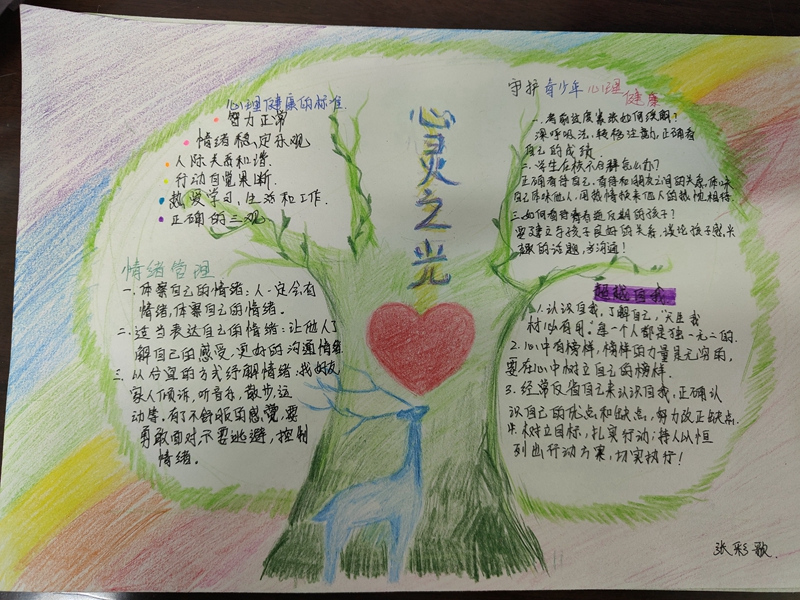 心灵之光
心理健康的标准
智力正常
情绪稳定乐观
人际关系和谐.
行动自觉果断.
热爱学习、生活和工作.
正确的三观
情绪管理
一.体察自己的情绪:人一定会有
情绪,体察自己的情绪.
二.适当表达自己的情绪:让他人了
解自己的感受,更好的沟通情绪
三.从合宜的方式纾解情绪:找好友
家人倾诉,听音乐,散步,运
动等.有了不舒服的感觉,要
勇敢面对,不要逃避,控制
情绪。
守护青少年心理
健康
一.考前过度紧张如何缓解?
深呼吸法,转移注意力,正确看
自己的成绩.
二.学生在校不合群怎么办?
正确看待自己,看待和朋友之间的关系,
三.如何看待青春期逆反的孩子?
要建立与孩子良好的关系,谈论孩子感兴
趣的话题,多沟通!
超越自我
1.认识自我,了解自己,"天生我
材必有用."每一个人都是独一无二的.
2.心中有榜样,榜样的力量是无穷的,
要在心中树立自己的榜样.
3.经常反省自己来认识自我,正确认
识自己的优点和缺点,努力改正缺点.
树立目标,扎实行动;持之以恒
列出行动方案,切实执行!
张彩歌.